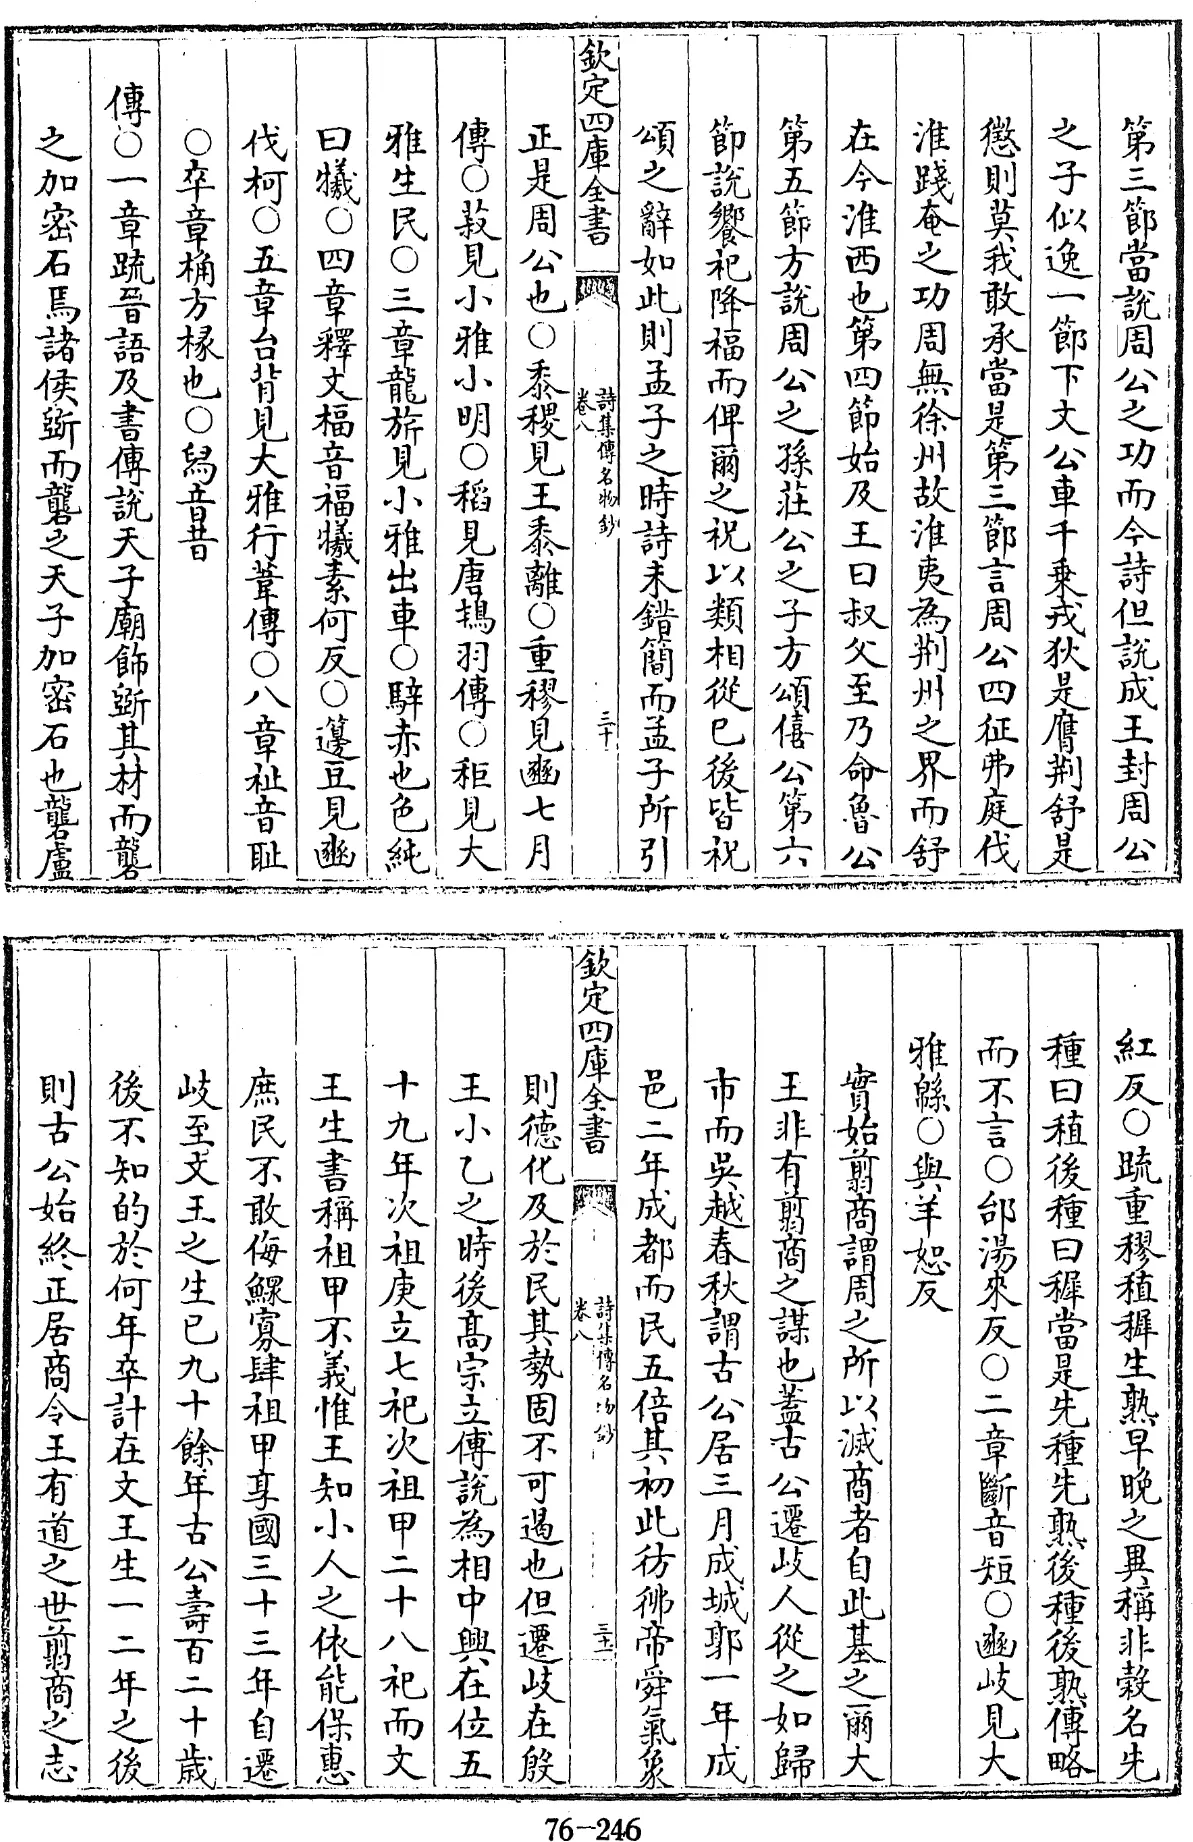 第三節當說周公之功而今詩但說成王封周公
之子似逸一節下文公車千乗戎狄是膺荆舒是
懲則莫我敢承當是第三節言周公四征弗庭伐
淮踐奄之功周無徐州故淮夷為荆州之界而舒
在今淮西也第四節始及王曰叔父至乃命魯公
第五節方說周公之孫莊公之子方頌僖公第六
節說饗祀降福而俾爾之祝以類相從已後皆祝
頌之辭如此則孟子之時詩未錯簡而孟子所引
欽定四庫全書
詩集傳名物鈔
卷八
三十
正是周公也○黍稷見王黍離○重穋見豳七月
傳○菽見小雅小明○稻見唐鴇羽傳○秬見大
雅生民○三章龍旂見小雅出車○騂赤也色純
曰犧○四章釋文楅音福犧素何反○籩豆見豳
伐柯○五章台背見大雅行葦傳○八章祉音耻
○卒章桷方椽也○舄音昔
傳○一章疏晉語及書傳說天子廟飾斵其材而礱
之加密石焉諸侯斵而礱之天子加密石也礱盧
紅反○疏重穋稙稺生熟早晚之異稱非穀名先
種曰稙後種曰稺當是先種先熟後種後熟傳略
而不言○邰湯來反○二章斷音短○豳岐見大
雅緜○與羊恕反
實始翦商謂周之所以滅商者自此基之爾大
王非有翦商之謀也蓋古公遷岐人從之如歸
市而吳越春秋謂古公居三月成城郭一年成
邑二年成都而民五倍其初此彷彿帝舜氣象
欽定四庫全書
詩集傳名物鈔
卷八
三十一
則德化及於民其勢固不可遏也但遷岐在殷
王小乙之時後髙宗立傅說為相中興在位五
十九年次祖庚立七祀次祖甲二十八祀而文
王生書稱祖甲不義惟王知小人之依能保惠
庶民不敢侮鰥寡肆祖甲享國三十三年自遷
岐至文王之生已九十餘年古公壽百二十歳
後不知的於何年卒計在文王生一二年之後
則古公始終正居商令王有道之世翦商之志
76-246